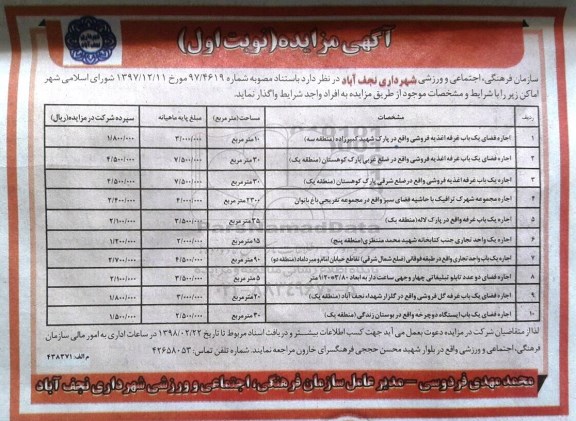 آگهی مزایده (نوبت اول)
شهرداری نجف آباد
سازمان فرهنگی، اجتماعی و ورزشی شهرداری نجف آباد در نظر دارد باستناد مصوبه شماره ۹۷/۴۶۱۹ مورخ ۱۳۹۷/۱۲/۱۱ شورای اسلامی شهر
اماکن زیر را با شرایط و مشخصات موجود از طریق مزایده به افراد واجد شرایط واگذار نماید.
ردیف مشخصات مساحت (متر مربع) مبلغ پایه ماهیانه سپرده شرکت در مزایده (ریال)
۱ اجاره فضای یک باب غرفه اغذیه فروشی واقع در پارک شهید کبیرزاده (منطقه سه) ۱۰ متر مربع ۳/۰۰۰/۰۰۰ ۱/۸۰۰/۰۰۰
۲ اجاره فضای یک باب غرفه اغذیه فروشی واقع در ضلع غربی پارک کوهستان (منطقه یک) ۳۰ متر مربع ۷/۵۰۰/۰۰۰ ۴/۵۰۰/۰۰۰
۳ اجاره فضای یک باب غرفه اغذیه فروشی واقع در ضلع شرقی پارک کوهستان (منطقه یک) ۳۰ متر مربع ۷/۵۰۰/۰۰۰ ۴/۵۰۰/۰۰۰
۴ اجاره مجموعه شهرک ترافیک با حاشیه فضای سبز واقع در مجموعه تفریحی باغ بانوان ۲۳۰۰ متر مربع ۴/۰۰۰/۰۰۰ ۲/۴۰۰/۰۰۰
۵ اجاره فضای یک باب غرفه واقع در پارک لاله (منطقه یک) ۲۵ متر مربع ۳/۵۰۰/۰۰۰ ۲/۱۰۰/۰۰۰
۶ اجاره یک واحد تجاری جنب کتابخانه شهید محمد منتظری (منطقه پنج) ۱۵ متر مربع ۲/۰۰۰/۰۰۰ ۱/۲۰۰/۰۰۰
۷ اجاره یک باب واحد تجاری واقع در طبقه فوقانی (ضلع شمال شرقی) تقاطع خیابان امام و میرداماد (منطقه دو) ۹۰ متر مربع ۴/۵۰۰/۰۰۰ ۲/۷۰۰/۰۰۰
۸ اجاره فضای دو عدد تابلو تبلیغاتی چهار وجهی ساعت دار به ابعاد ۳/۸۰*۱/۲۰ متر ۵ متر مربع ۳/۵۰۰/۰۰۰ ۲/۱۰۰/۰۰۰
۹ اجاره فضای یک باب غرفه گل فروشی واقع در گلزار شهداء نجف آباد (منطقه یک) ۲۰ متر مربع ۳/۰۰۰/۰۰۰ ۱/۸۰۰/۰۰۰
۱۰ اجاره فضای یک باب ایستگاه دوچرخه واقع در بوستان زندگی (منطقه یک) ۳۰ متر مربع ۲/۵۰۰/۰۰۰ ۱/۵۰۰/۰۰۰
لذا از متقاضیان شرکت در مزایده دعوت بعمل می آید جهت کسب اطلاعات بیشتر و دریافت اسناد مربوط تا تاریخ ۱۳۹۸/۰۲/۲۲ در ساعات اداری به امور مالی سازمان
فرهنگی، اجتماعی و ورزشی واقع در بلوار شهید محسن حججی فرهنگسرای خارون مراجعه نمایند. شماره تلفن تماس: ۴۲۶۵۸۰۵۳
م الف: ۴۳۸۳۷۱
محمد مهدی فردوسی - مدیر عامل سازمان فرهنگی، اجتماعی و ورزشی شهرداری نجف آباد
ParsNamadData